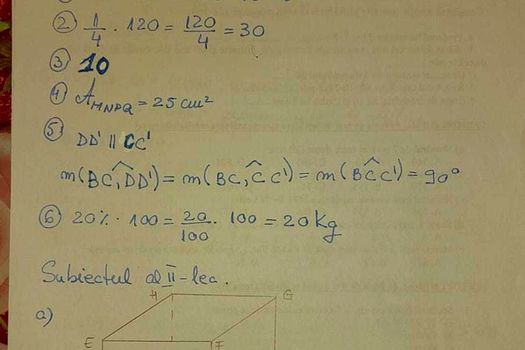 2) 1/4 · 120 = 120/4 = 30
3) 10
4) A_MNPQ = 25 cm²
5) DD' || CC'
m(BC, DD') = m(BC, CC') = m(BCC') = 90°
6) 20% · 100 = 20/100 · 100 = 20 Kg
Subiectul al II-lea.
H G
a)
E F